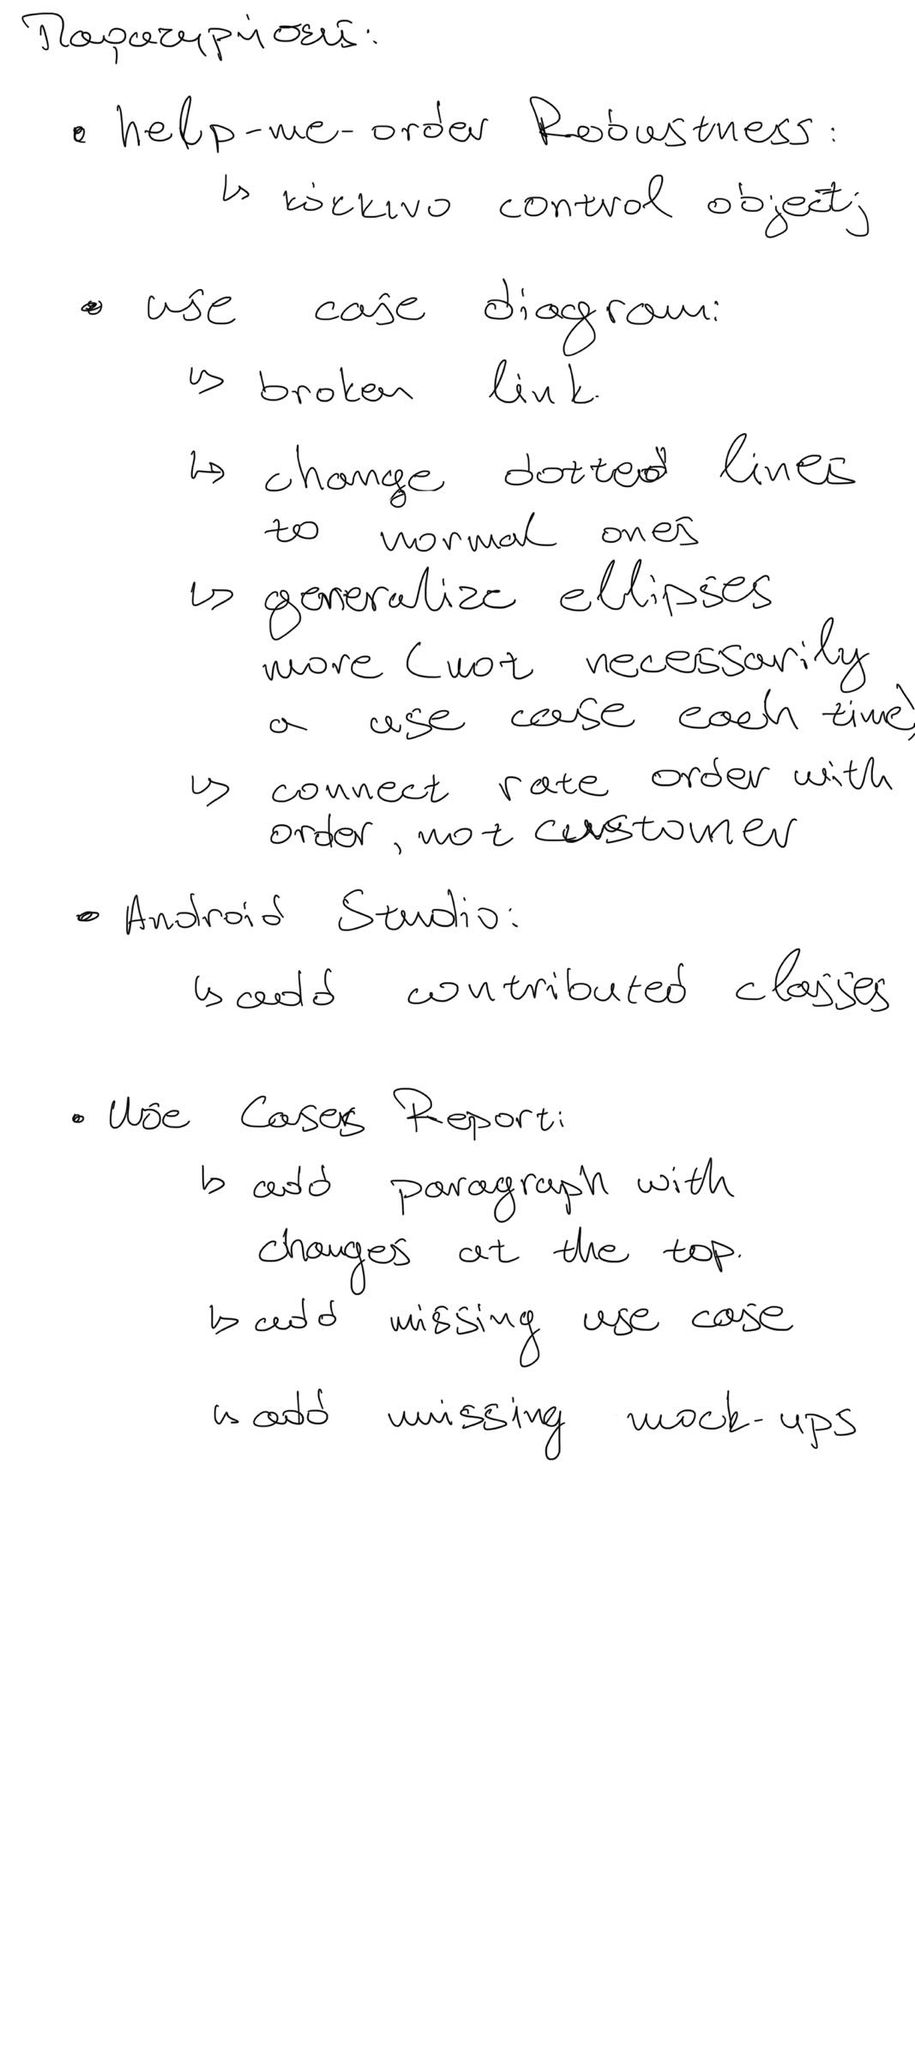 Παρατηρήσεις:
• help-me-order Robustness:
↳ κόκκινο control object;
• use case diagram:
↳ broken link.
↳ change dotted lines
to normal ones
↳ generalize ellipses
more (not necessarily
a use case each time)
↳ connect rate order with
order, not customer
• Android Studio:
↳ add contributed classes
• Use Cases Report:
↳ add paragraph with
changes at the top.
↳ add missing use case
↳ add missing mock-ups